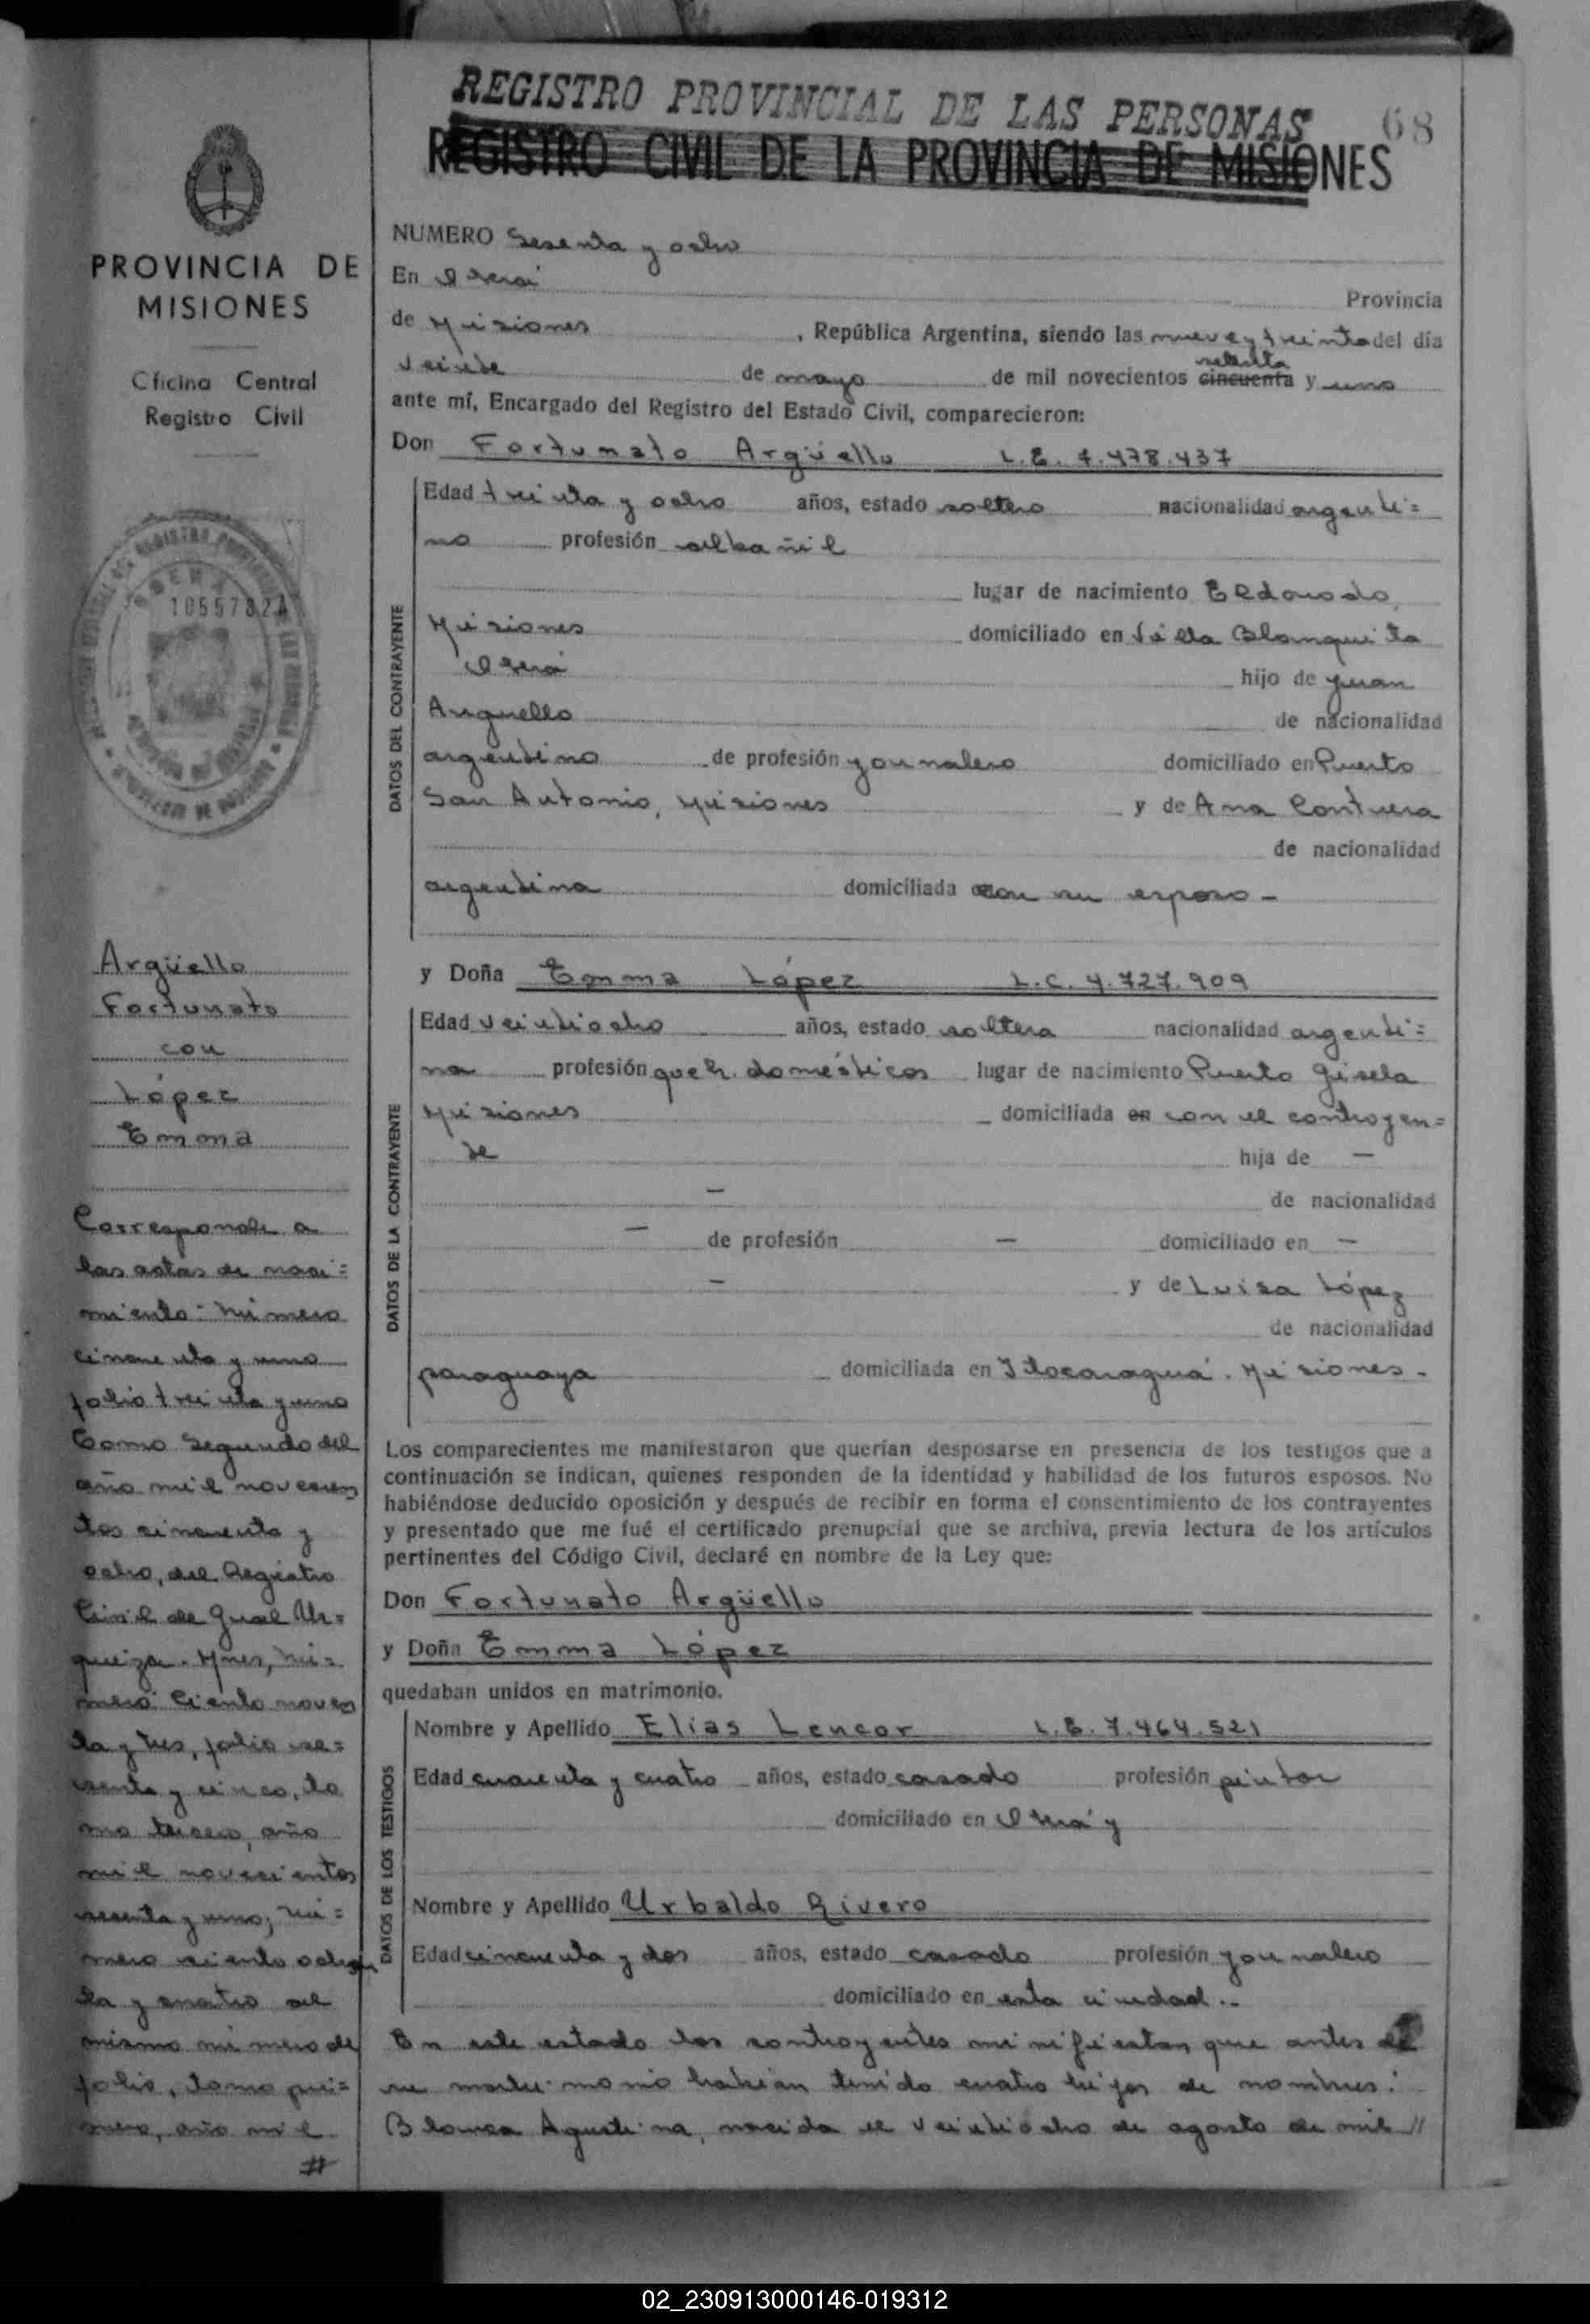 REGISTRO PROVINCIAL DE LAS PERSONAS
68
REGISTRO CIVIL DE LA PROVINCIA DE MISIONES
PROVINCIA DE
MISIONES
Oficina Central
Registro Civil
1055782A
Argüello
Fortunato
con
López
Emma
Corresponde a
las actas de naci=
miento: Número
cincuenta y uno
folio treinta y uno
Tomo Segundo del
año mil novecien
tos cincuenta y
ocho, del Registro
Civil de Gral Ur=
quiza. Mnes, Nú=
mero: Ciento noven
ta y tres, folio se=
senta y cinco, to
mo tercero, año
mil novecientos
sesenta y uno; Nú=
mero ciento ochen
ta y cuatro al
mismo número de
folio, tomo pri=
mero, año mil
#
NUMERO Sesenta y ocho
En Oberá Provincia
de Misiones, República Argentina, siendo las nueve y treinta del día
veinte de mayo de mil novecientos cincuenta setenta y uno
ante mí, Encargado del Registro del Estado Civil, comparecieron:
Don Fortunato Argüello L.E. 7.478.437
DATOS DEL CONTRAYENTE
Edad treinta y ocho años, estado soltero nacionalidad argenti=
no profesión albañil
lugar de nacimiento Eldorado,
Misiones domiciliado en Villa Blanquita
Oberá hijo de Juan
Arguello de nacionalidad
argentino de profesión jornalero domiciliado en Puerto
San Antonio, Misiones y de Ana Contrera
de nacionalidad
argentina domiciliada con su esposo -
y Doña Emma López L.C. 4.727.909
DATOS DE LA CONTRAYENTE
Edad veintiocho años, estado soltera nacionalidad argenti=
na profesión queh. domésticos lugar de nacimiento Puerto Gisela
Misiones domiciliada en con el contrayen=
te hija de —
— de nacionalidad
— de profesión — domiciliado en —
— y de Luisa López
de nacionalidad
paraguaya domiciliada en Itacaraguá. Misiones -
Los comparecientes me manifestaron que querían desposarse en presencia de los testigos que a
continuación se indican, quienes responden de la identidad y habilidad de los futuros esposos. No
habiéndose deducido oposición y después de recibir en forma el consentimiento de los contrayentes
y presentado que me fué el certificado prenupcial que se archiva, previa lectura de los artículos
pertinentes del Código Civil, declaré en nombre de la Ley que:
Don Fortunato Argüello
y Doña Emma López
quedaban unidos en matrimonio.
DATOS DE LOS TESTIGOS
Nombre y Apellido Elias Lencor L.E. 7.464.521
Edad cuarenta y cuatro años, estado casado profesión pintor
domiciliado en Oberá y
Nombre y Apellido Urbaldo Rivero
Edad cincuenta y dos años, estado casado profesión jornalero
domiciliado en esta ciudad..
En este estado los contrayentes manifiestan que antes de
su matrimonio habían tenido cuatro hijos de nombres:
Blanca Agustina, nacida el veintiocho de agosto de mil //
02_230913000146-019312